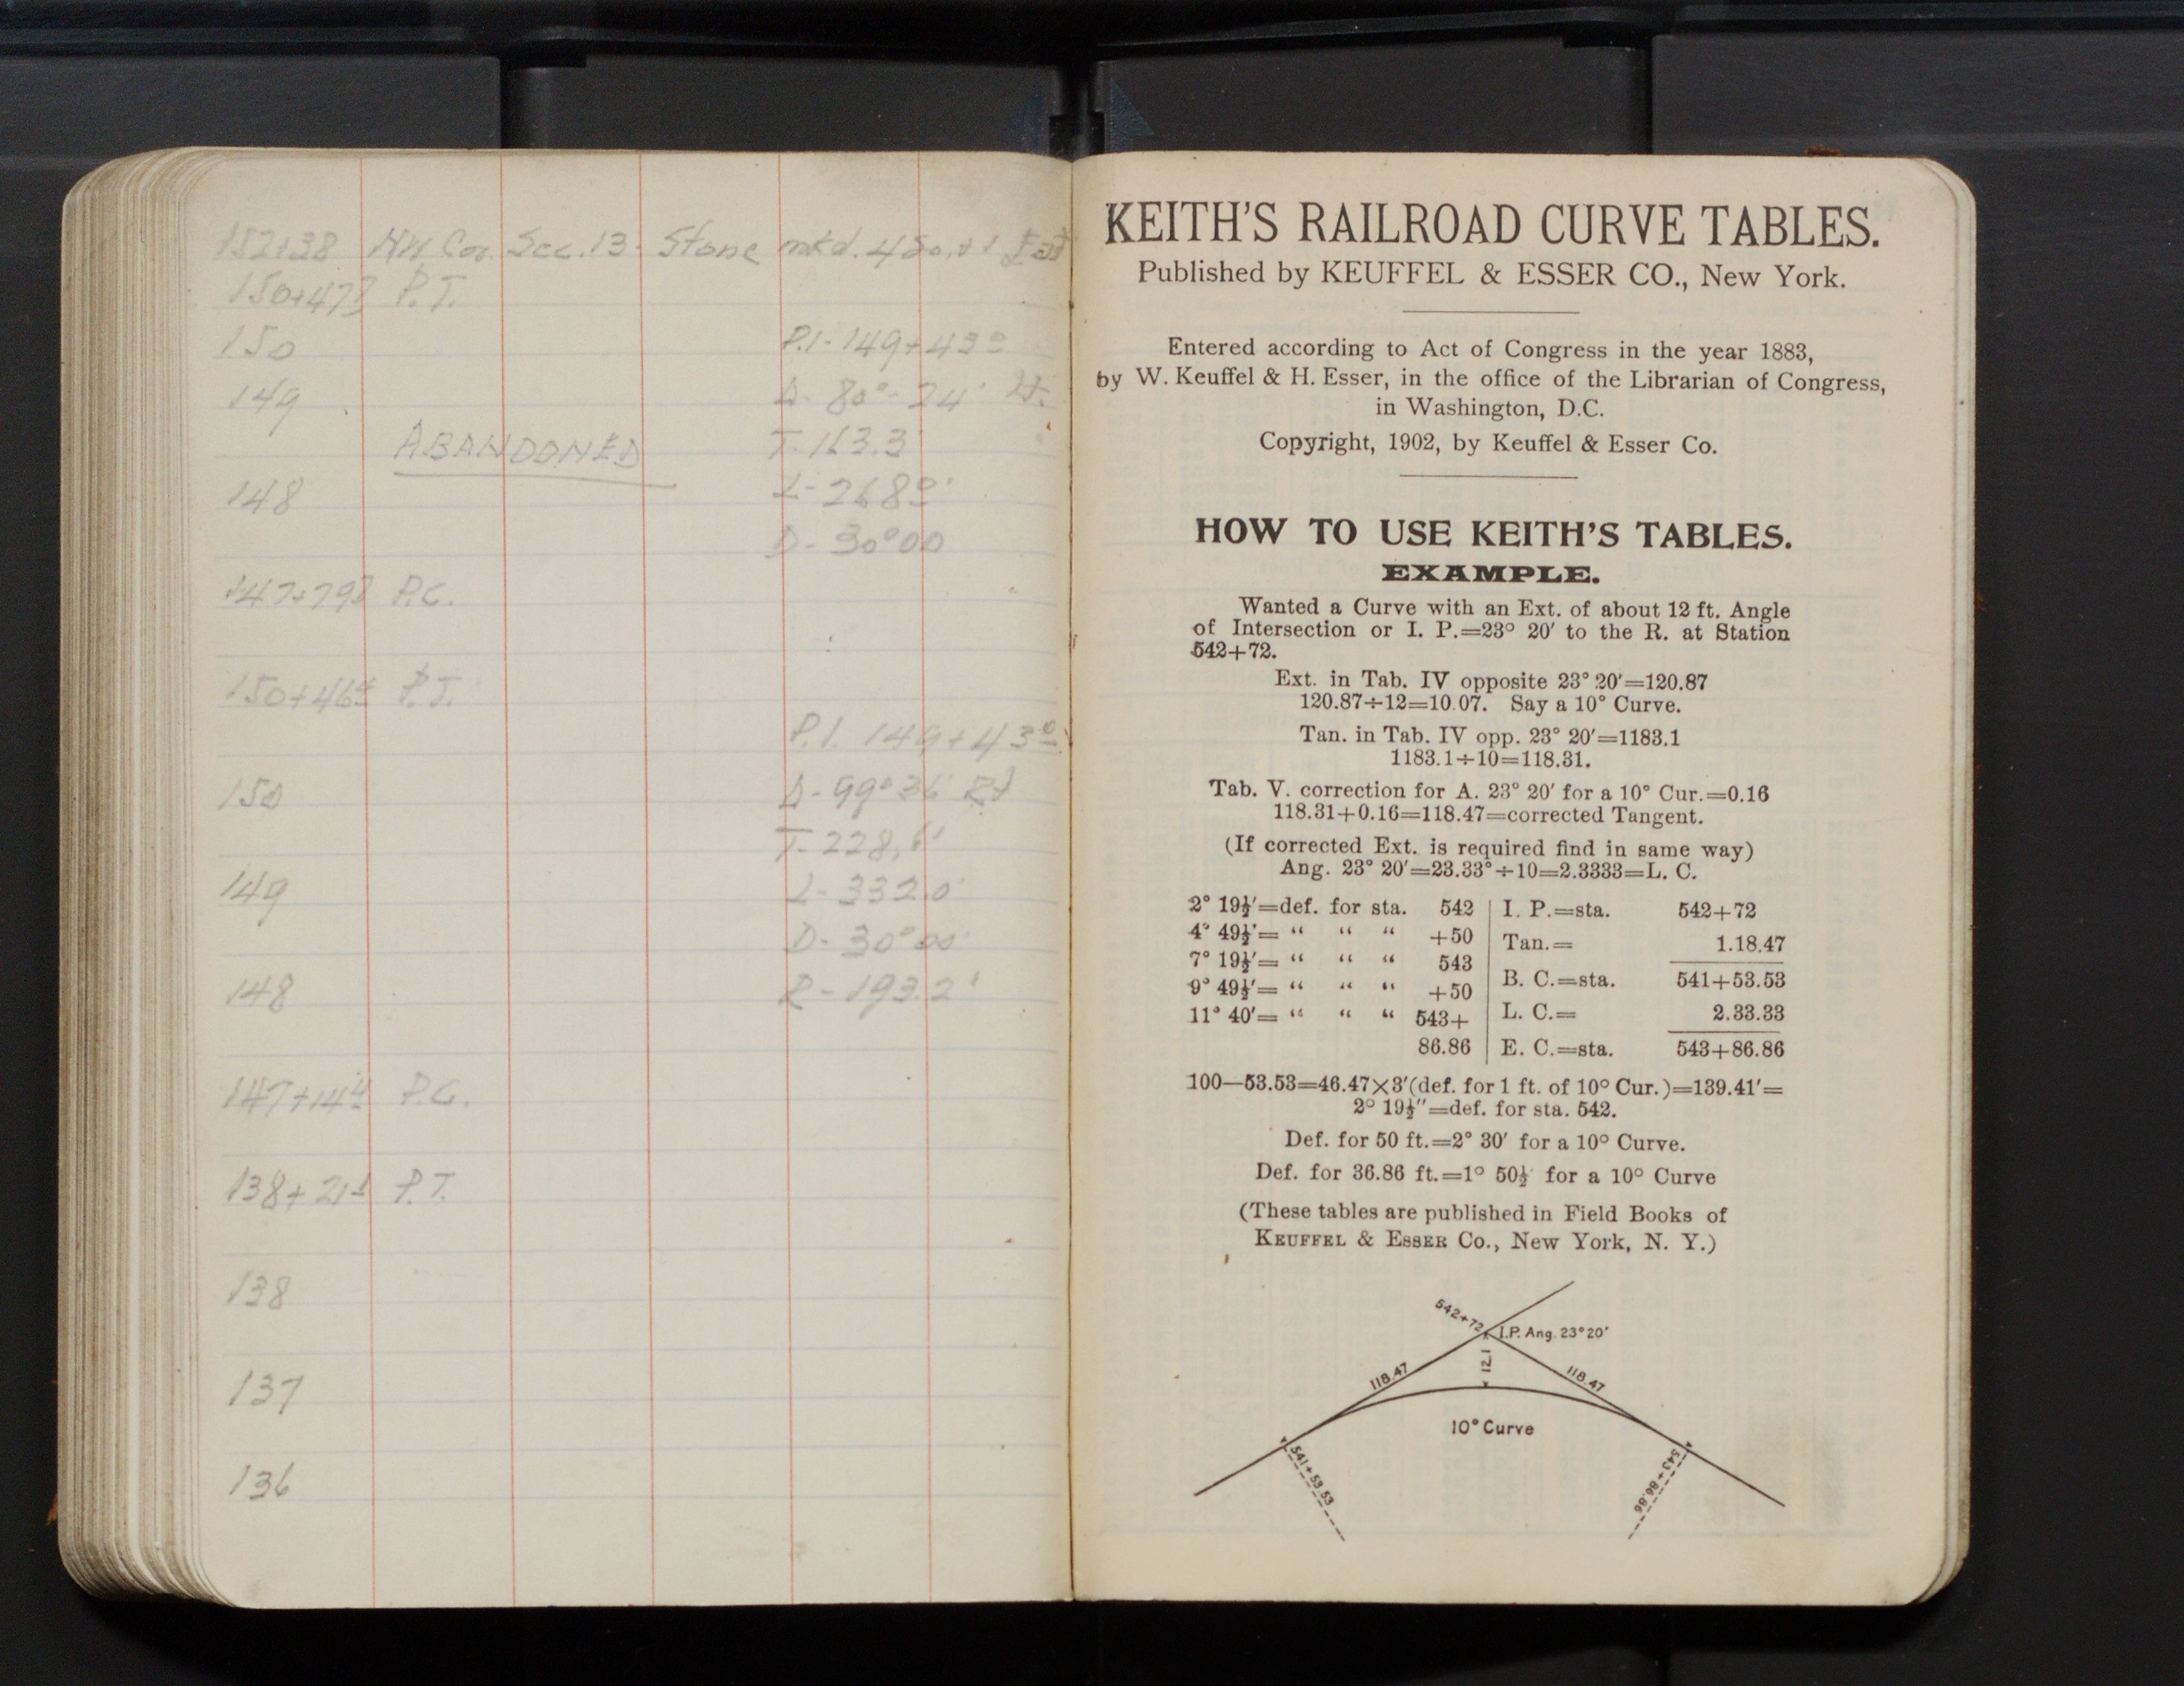 152+38 NW Cor. Sec. 13 - Stone mkd.
150+47³ P.T.
150 P.I - 149+43⁰
149 Δ - 80° - 24' Lt.
ABANDONED T- 163.3'
148 L - 268⁰'
D - 30°00
147+79³ P.C.
150+46⁴ P.T.
P.I. 149+43⁰
150 Δ - 99°36' Rt
T- 228.6'
149 L - 332.0'
D - 30°00'
148 R - 193.2'
147+14⁴ P.C.
138+21¹ P.T.
138
137
136
KEITH'S RAILROAD CURVE TABLES.
Published by KEUFFEL & ESSER CO., New York.
Entered according to Act of Congress in the year 1883,
by W. Keuffel & H. Esser, in the office of the Librarian of Congress,
in Washington, D.C.
Copyright, 1902, by Keuffel & Esser Co.
HOW TO USE KEITH'S TABLES.
EXAMPLE.
Wanted a Curve with an Ext. of about 12 ft. Angle
of Intersection or I. P.=23° 20′ to the R. at Station
542+72.
Ext. in Tab. IV opposite 23° 20′=120.87
120.87÷12=10.07. Say a 10° Curve.
Tan. in Tab. IV opp. 23° 20′=1183.1
1183.1÷10=118.31.
Tab. V. correction for A. 23° 20′ for a 10° Cur.=0.16
118.31+0.16=118.47=corrected Tangent.
(If corrected Ext. is required find in same way)
Ang. 23° 20′=23.33°÷10=2.3333=L. C.
2° 19½′=def. for sta. 542 I. P.=sta. 542+72
4° 49½′= “ “ “ +50 Tan.= 1.18.47
7° 19½′= “ “ “ 543
9° 49½′= “ “ “ +50 B. C.=sta. 541+53.53
11° 40′= “ “ “ 543+ L. C.= 2.33.33
86.86 E. C.=sta. 543+86.86
100—53.53=46.47×3′(def. for 1 ft. of 10° Cur.)=139.41′=
2° 19½″=def. for sta. 542.
Def. for 50 ft.=2° 30′ for a 10° Curve.
Def. for 36.86 ft.=1° 50½′ for a 10° Curve
(These tables are published in Field Books of
KEUFFEL & ESSER Co., New York, N. Y.)
542+72
I.P. Ang. 23°20′
118.47
12.1
118.47
10° Curve
541+53.53
543+86.86